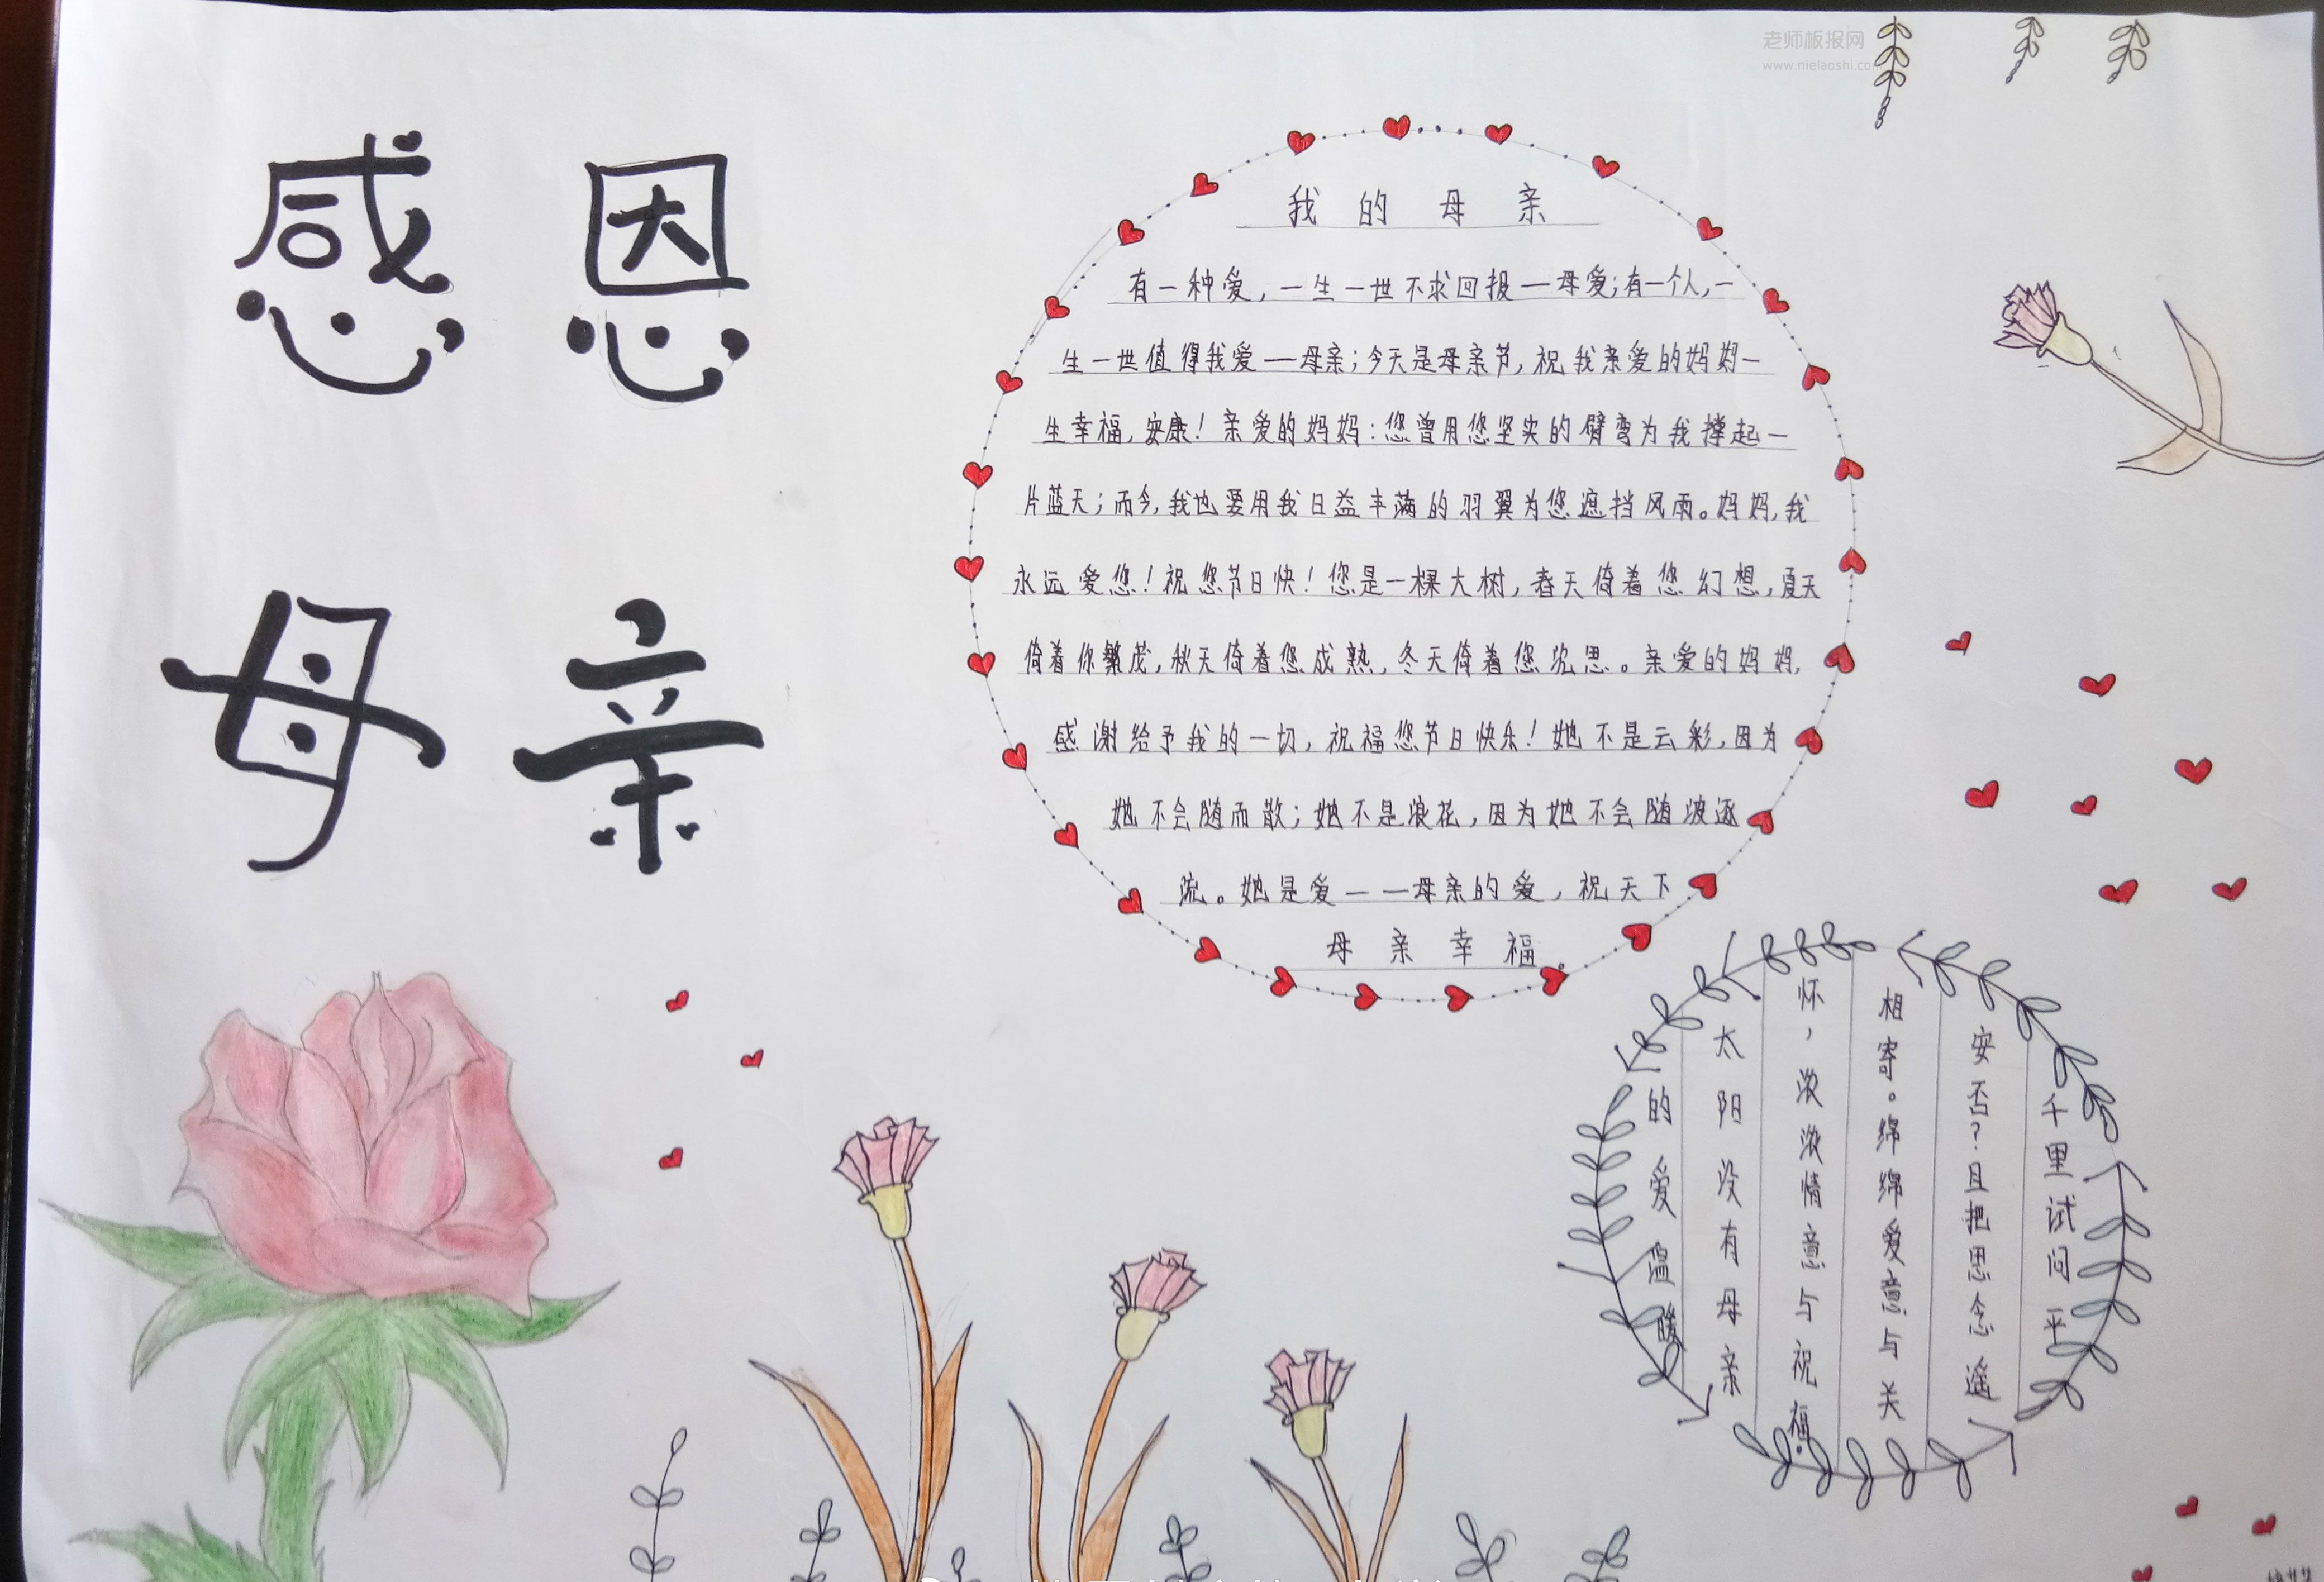 老师板报网
www.nielaoshi.com
感恩
母亲
我的母亲
有一种爱，一生一世不求回报一母爱；有一个人，一
生一世值得我爱—母亲；今天是母亲节，祝我亲爱的妈妈一
生幸福，安康！亲爱的妈妈：您曾用您坚实的臂弯为我撑起一
片蓝天；而今，我也要用我日益丰满的羽翼为您遮挡风雨。妈妈，我
永远爱您！祝您节日快！您是一棵大树，春天倚着您幻想，夏天
倚着你繁茂，秋天倚着您成熟，冬天倚着您沉思。亲爱的妈妈，
感谢给予我的一切，祝福您节日快乐！她不是云彩，因为
她不会随而散；她不是浪花，因为她不会随波逐
流。她是爱——母亲的爱，祝天下
母亲幸福。
千里试问平
安否？且把思念遥
相寄。绵绵爱意与关
怀，浓浓情意与祝福。
太阳没有母亲
的爱温暖